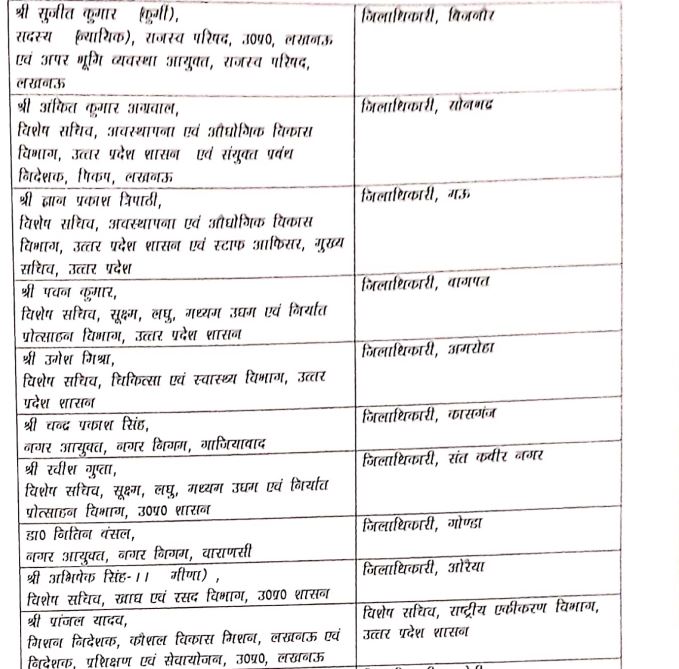 श्री सुजीत कुमार (कुर्मी),
सदस्य (न्यायिक), राजस्व परिषद, उ0प्र0, लखनऊ
एवं अपर भूमि व्यवस्था आयुक्त, राजस्व परिषद,
लखनऊ
जिलाधिकारी, बिजनौर
श्री अंकित कुमार अग्रवाल,
विशेष सचिव, अवस्थापना एवं औद्योगिक विकास
विभाग, उत्तर प्रदेश शासन एवं संयुक्त प्रबंध
निदेशक, पिकप, लखनऊ
जिलाधिकारी, सोनभद्र
श्री ज्ञान प्रकाश त्रिपाठी,
विशेष सचिव, अवस्थापना एवं औद्योगिक विकास
विभाग, उत्तर प्रदेश शासन एवं स्टाफ आफिसर, मुख्य
सचिव, उत्तर प्रदेश
जिलाधिकारी, मऊ
श्री पवन कुमार,
विशेष सचिव, सूक्ष्म, लघु, मध्यम उद्यम एवं निर्यात
प्रोत्साहन विभाग, उत्तर प्रदेश शासन
जिलाधिकारी, बागपत
श्री उमेश मिश्रा,
विशेष सचिव, चिकित्सा एवं स्वास्थ्य विभाग, उत्तर
प्रदेश शासन
जिलाधिकारी, अमरोहा
श्री चन्द्र प्रकाश सिंह,
नगर आयुक्त, नगर निगम, गाजियाबाद
जिलाधिकारी, कासगंज
श्री रवीश गुप्ता,
विशेष सचिव, सूक्ष्म, लघु, मध्यम उद्यम एवं निर्यात
प्रोत्साहन विभाग, उ0प्र0 शासन
जिलाधिकारी, संत कबीर नगर
डा0 नितिन बंसल,
नगर आयुक्त, नगर निगम, वाराणसी
जिलाधिकारी, गोण्डा
श्री अभिषेक सिंह-।। मीणा) ,
विशेष सचिव, खाद्य एवं रसद विभाग, उ0प्र0 शासन
जिलाधिकारी, औरैया
श्री प्रांजल यादव,
मिशन निदेशक, कौशल विकास मिशन, लखनऊ एवं
निदेशक, प्रशिक्षण एवं सेवायोजन, उ0प्र0, लखनऊ
विशेष सचिव, राष्ट्रीय एकीकरण विभाग,
उत्तर प्रदेश शासन